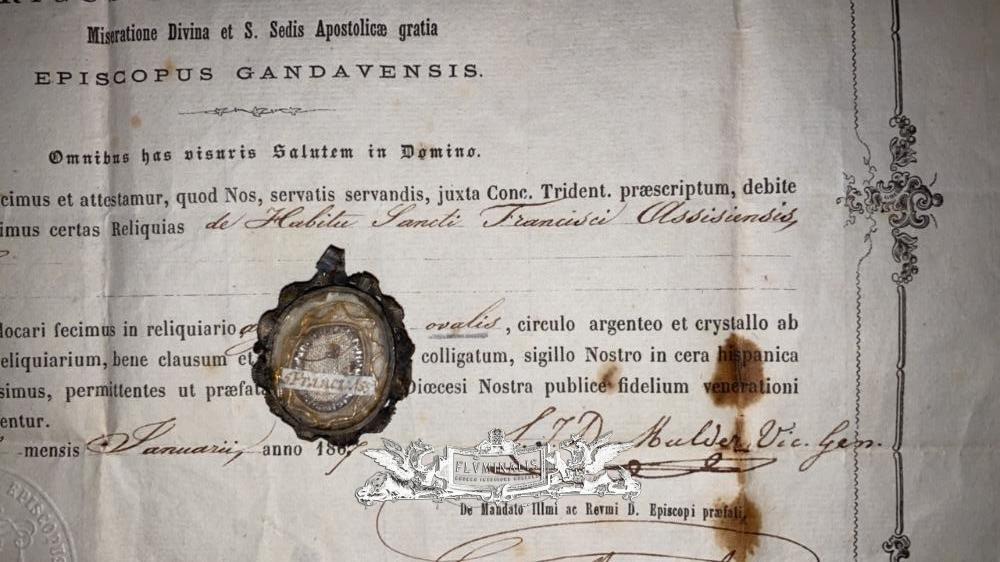 Miseratione Divina et S. Sedis Apostolicæ gratia
EPISCOPUS GANDAVENSIS.
Omnibus has visuris Salutem in Domino.
cimus et attestamur, quod Nos, servatis servandis, juxta Conc. Trident. præscriptum, debite
imus certas Reliquias de Habitu Sancti Francisci Assisiensis,
locari fecimus in reliquiario ovalis, circulo argenteo et crystallo ab
eliquiarium, bene clausum et colligatum, sigillo Nostro in cera hispanica
simus, permittentes ut præfat Diœcesi Nostra publice fidelium venerationi
entur.
mensis Januarii, anno 186
Mulder Vic. Gen.
FLVMINALIS
De Mandato Illmi ac Revmi D. Episcopi præfati,
EPISCOPUS